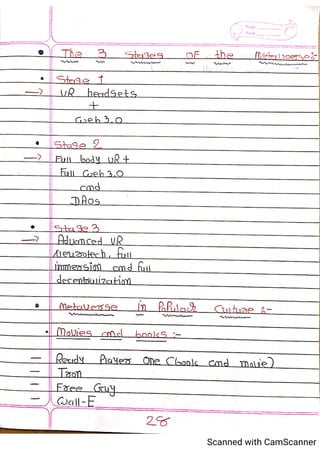 The 3 Stages OF the Metaverse:-
Stage 1
→ VR headsets
+
Web 3.0
Stage 2
→ Full body VR +
Full Web 3.0
and
DAOs
Stage 3
→ Advanced VR
Neurotech, full
immersion and full
decentralization
Metaverse in Popular Culture :-
Movies and books :-
– Ready Player One (book and movie)
– Tron
– Free Guy
– Wall-E
28
Scanned with CamScanner